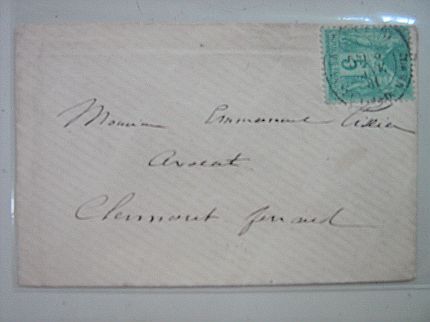 Monsieur Emmanuel Tissier
Avocat
Clermont ferrand